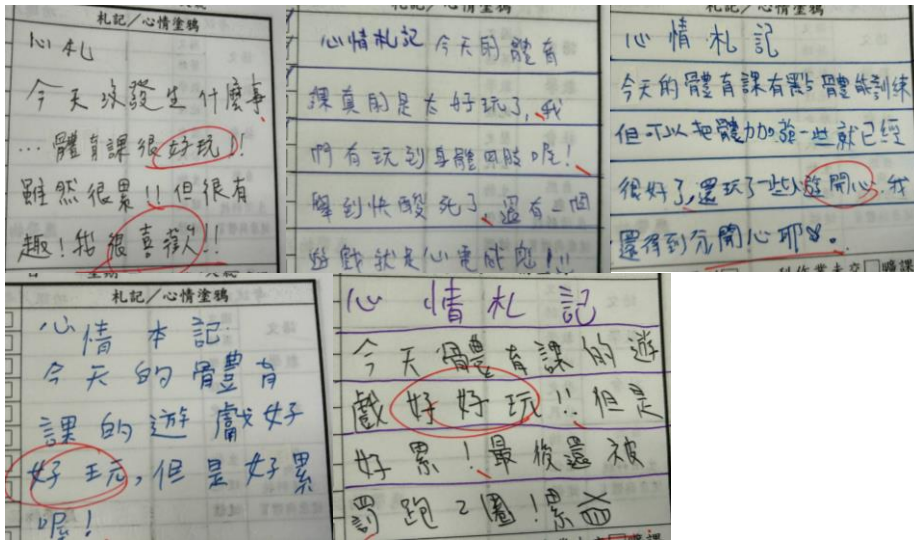 札記／心情塗鴉
心札
今天沒發生什麼事
…體育課很好玩!!
雖然很累!!但很有
趣!我很喜歡!!
札記／心情塗鴉
心情札記 今天的體育
課真的是太好玩了,我
們有玩到身體四肢呢!
舉到快酸死了、還有一個
遊戲就是心電感應!!!
札記／心情塗鴉
心情札記
今天的體育課有點體能訓練
但可以把體力加強一些就已經
很好了,還玩了一些遊開心,我
還得到分開心耶。
札記／心情塗鴉
心情本記:
今天的體育
課的遊戲好
好玩,但是好累
喔!
心情札記
今天體育課的遊
戲好好玩!!但是
好累!最後還被
罰跑2圈!累